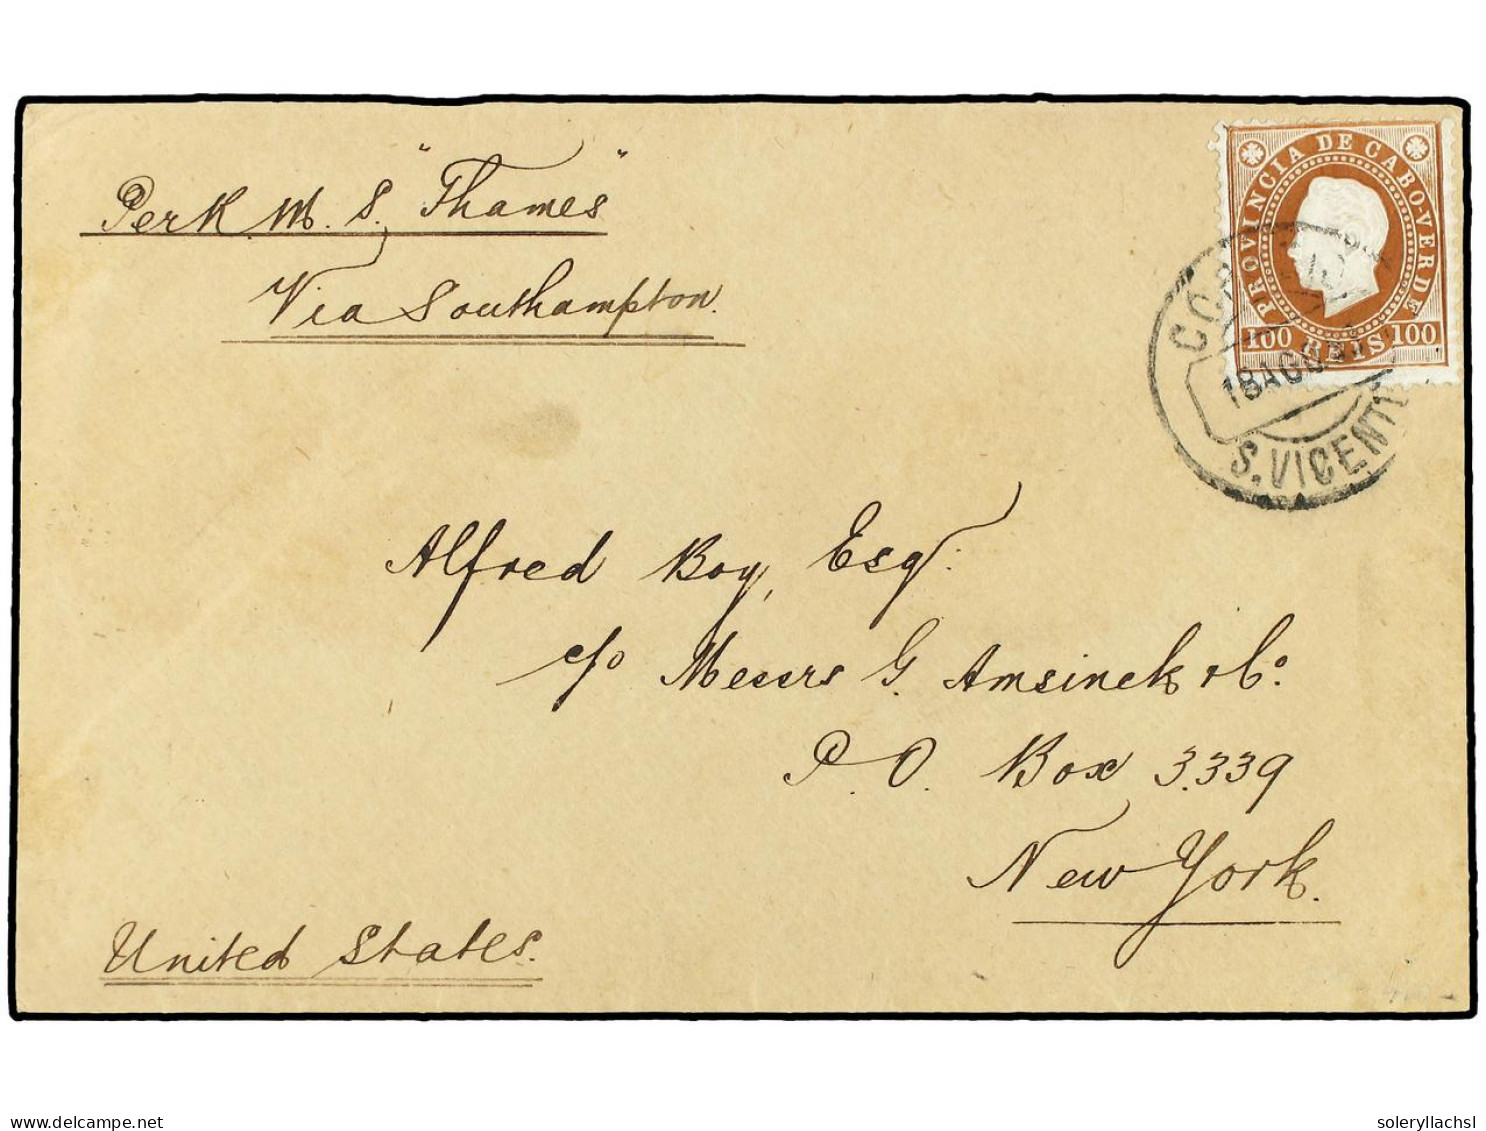 Per R. M. S. "Thames"
Via Southampton.
PROVINCIA DE CABO-VERDE
100 REIS 100
18 AGO
S. VICENTE
Alfred Boy, Esq.
c/o Messrs G. Amsinck & Co.
P. O. Box 3.339
New York.
United States.
delcampe.net
soleryllachsl